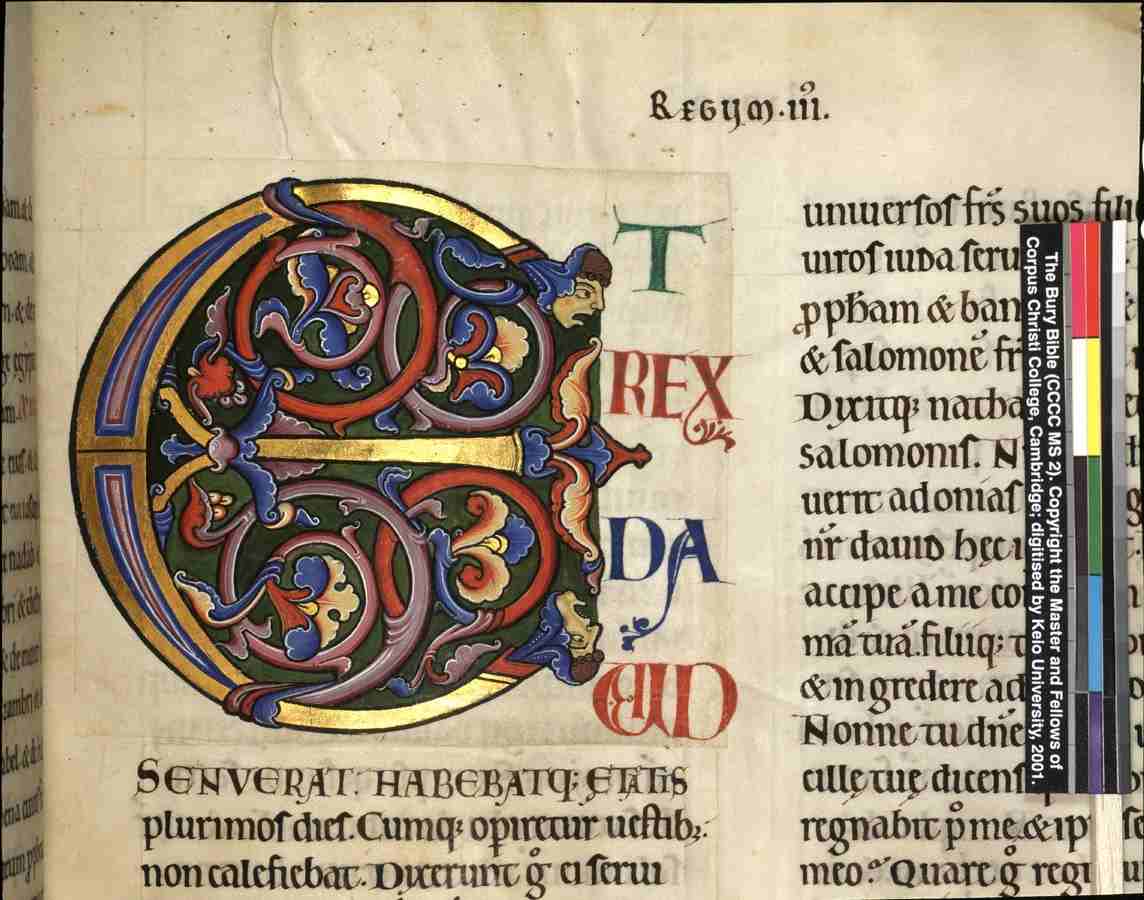 REGUM·III.
E
T
REX
DA
UID
SENVERAT. HABEBATQ; ETATIS
plurimoſ dieſ. Cumq; opiretur ueſtib;
non calefiebat. Dixerunt g̊ ei ſerui
uniuerſoſ fr̄s suos filio
uiroſ iuda ſeru
ꝓpham & ban
& ſalomonē fr̄
Dixitq; natha
salomoniſ. N
uerit adoniaſ
nr̄ dauid hęc
accipe a me co
mā tuā. filiiq; t
& ingredere ad
Nonne tu dn̄e
cillę tuę dicenſ
regnabit p̊ me. & ip
meo? Quare g̊ reg
The Bury Bible (CCCC MS 2). Copyright the Master and Fellows of
Corpus Christi College, Cambridge; digitised by Keio University, 2001.